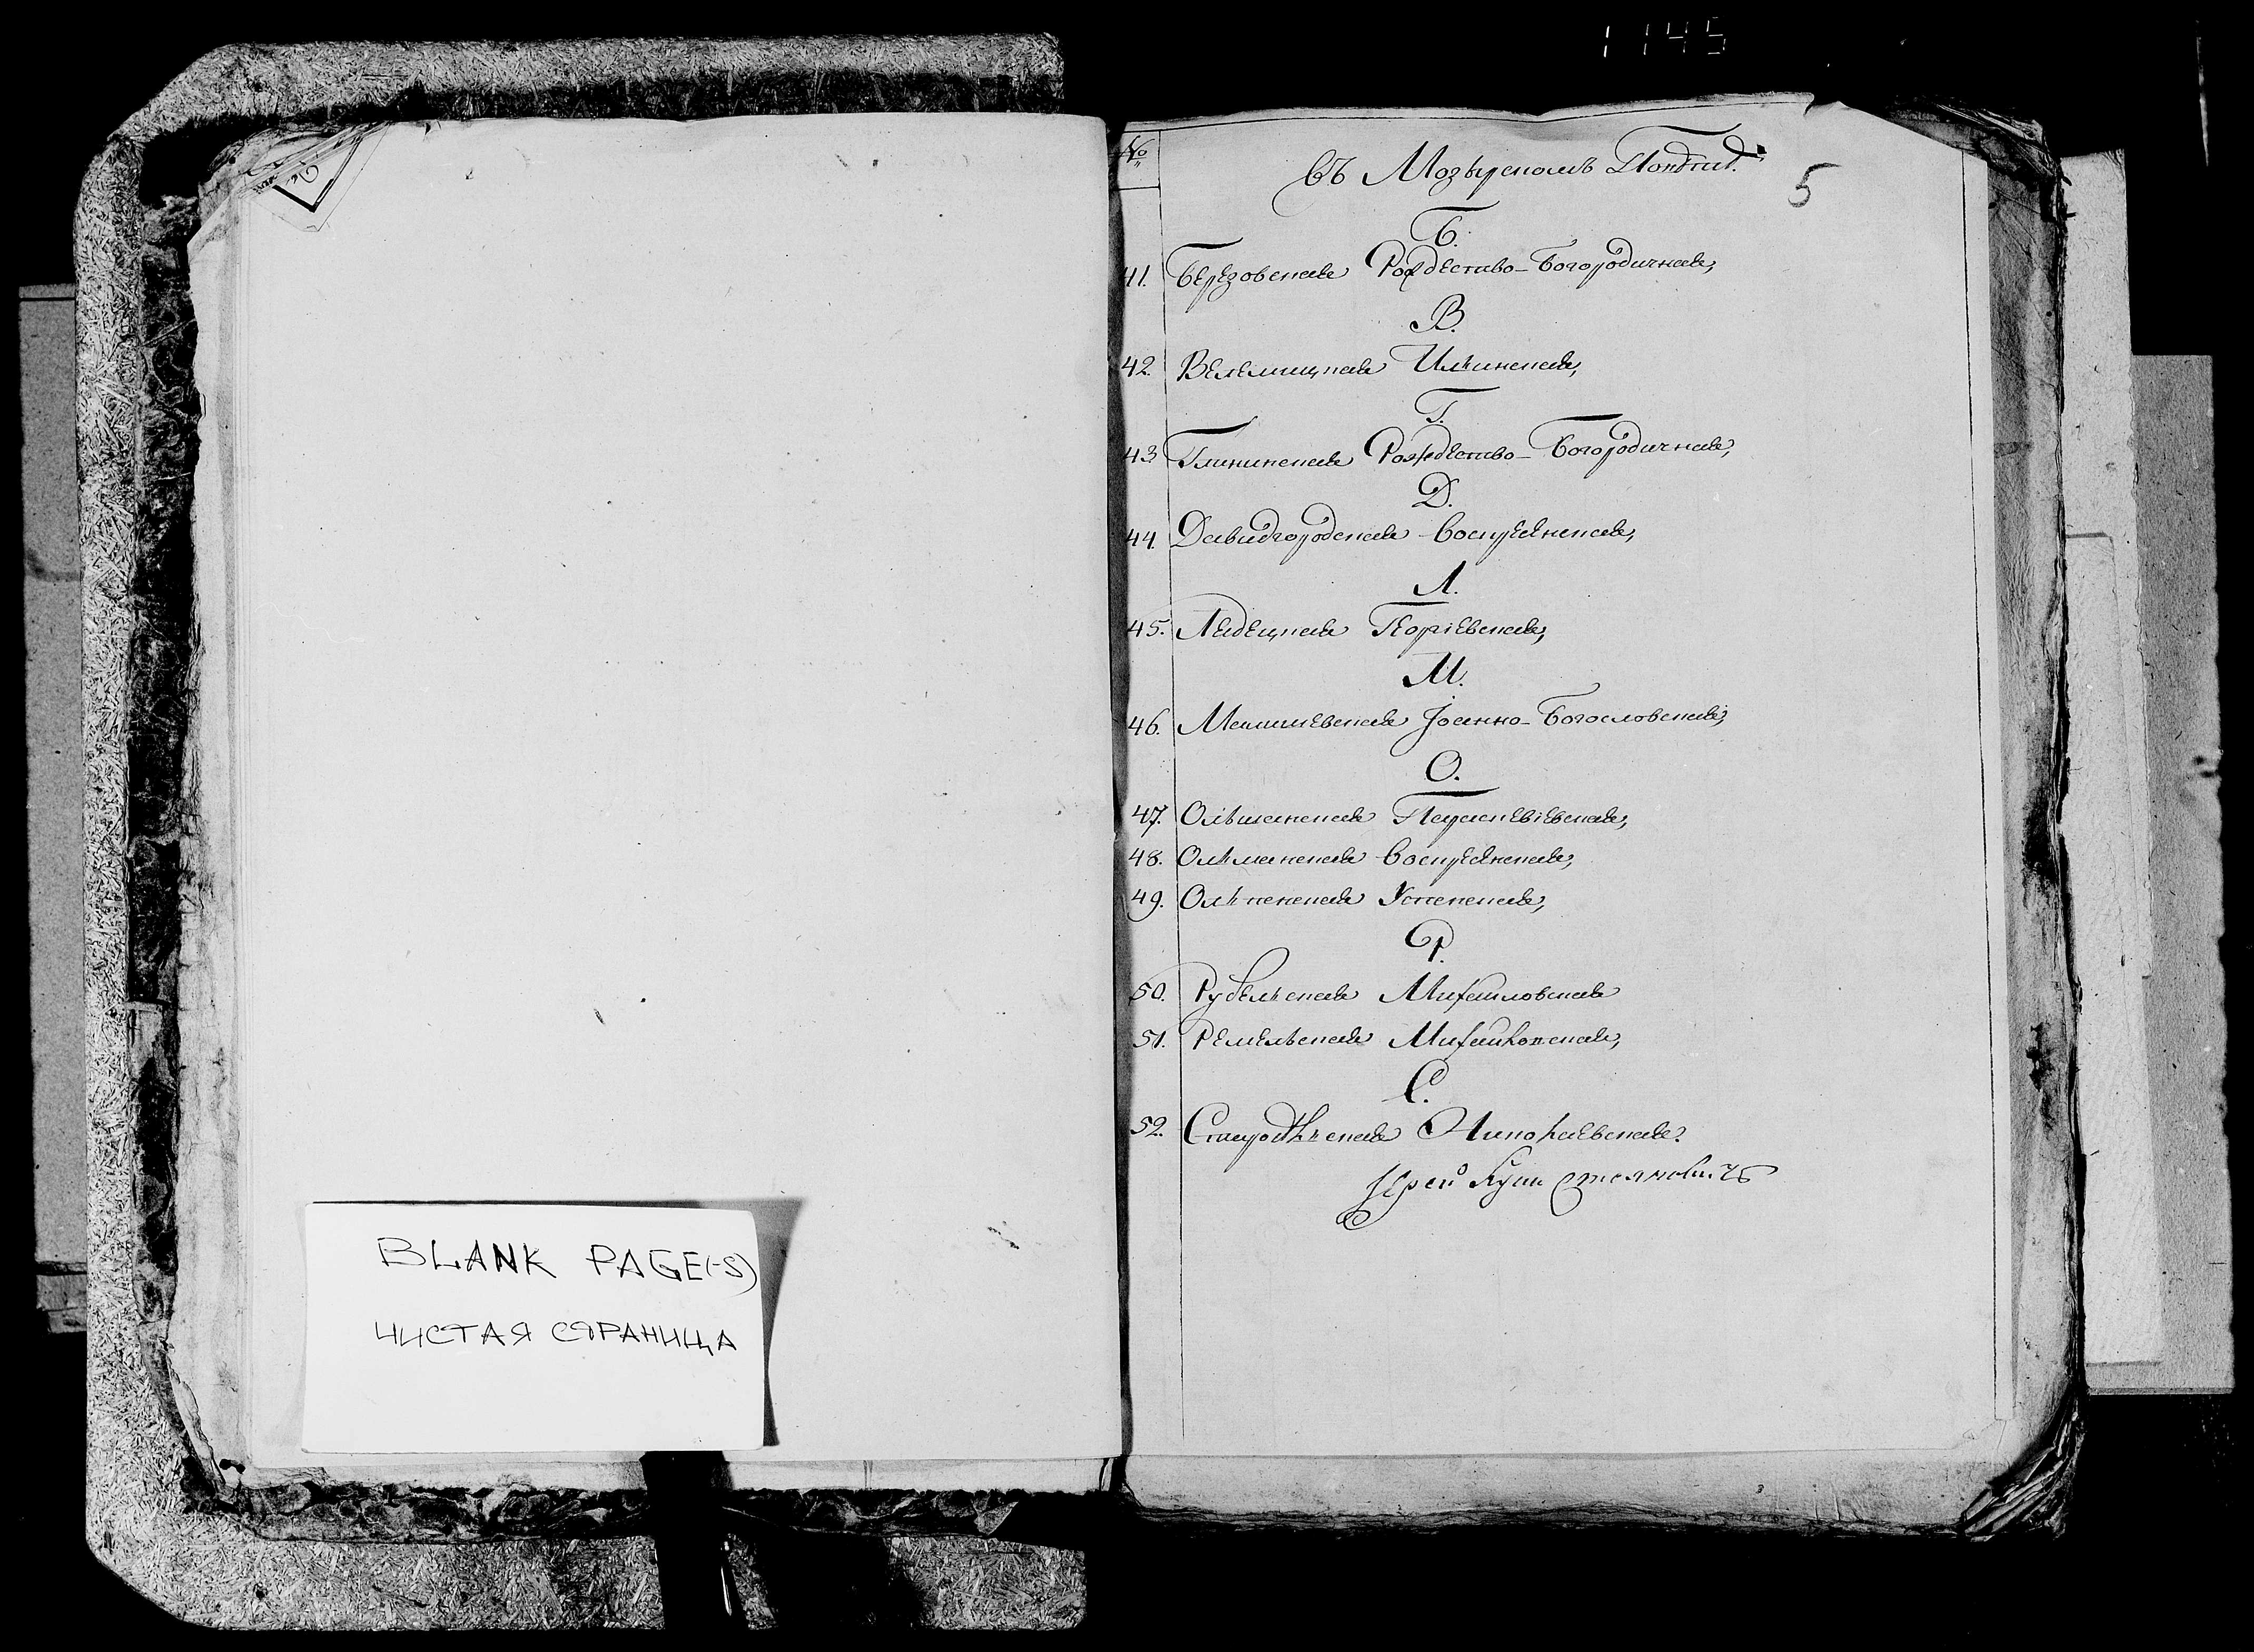 1145
№
Въ Мозырскомъ Повѣтѣ.
5
Б.
41. Березовская Рождество-Богородичная,
В.
42. Велемицкая Ильинская,
Г.
43 Глининская Рождество-Богородичная,
Д.
44. Давидгородская Воскресенская,
Л.
45. Лядецкая Георгіевская,
М.
46. Іоанно-Богословская,
О.
47. Ольшанская Параскевіевская,
48. Ольманская Воскресенская,
49. Ольпенская Успенская,
Р.
50. Рубельская Михайловская
51. Ремельская Михайловская,
С.
52. Николаевская.
Іерей Стояновичъ
BLANK PAGE(-S)
ЧИСТАЯ СТРАНИЦА